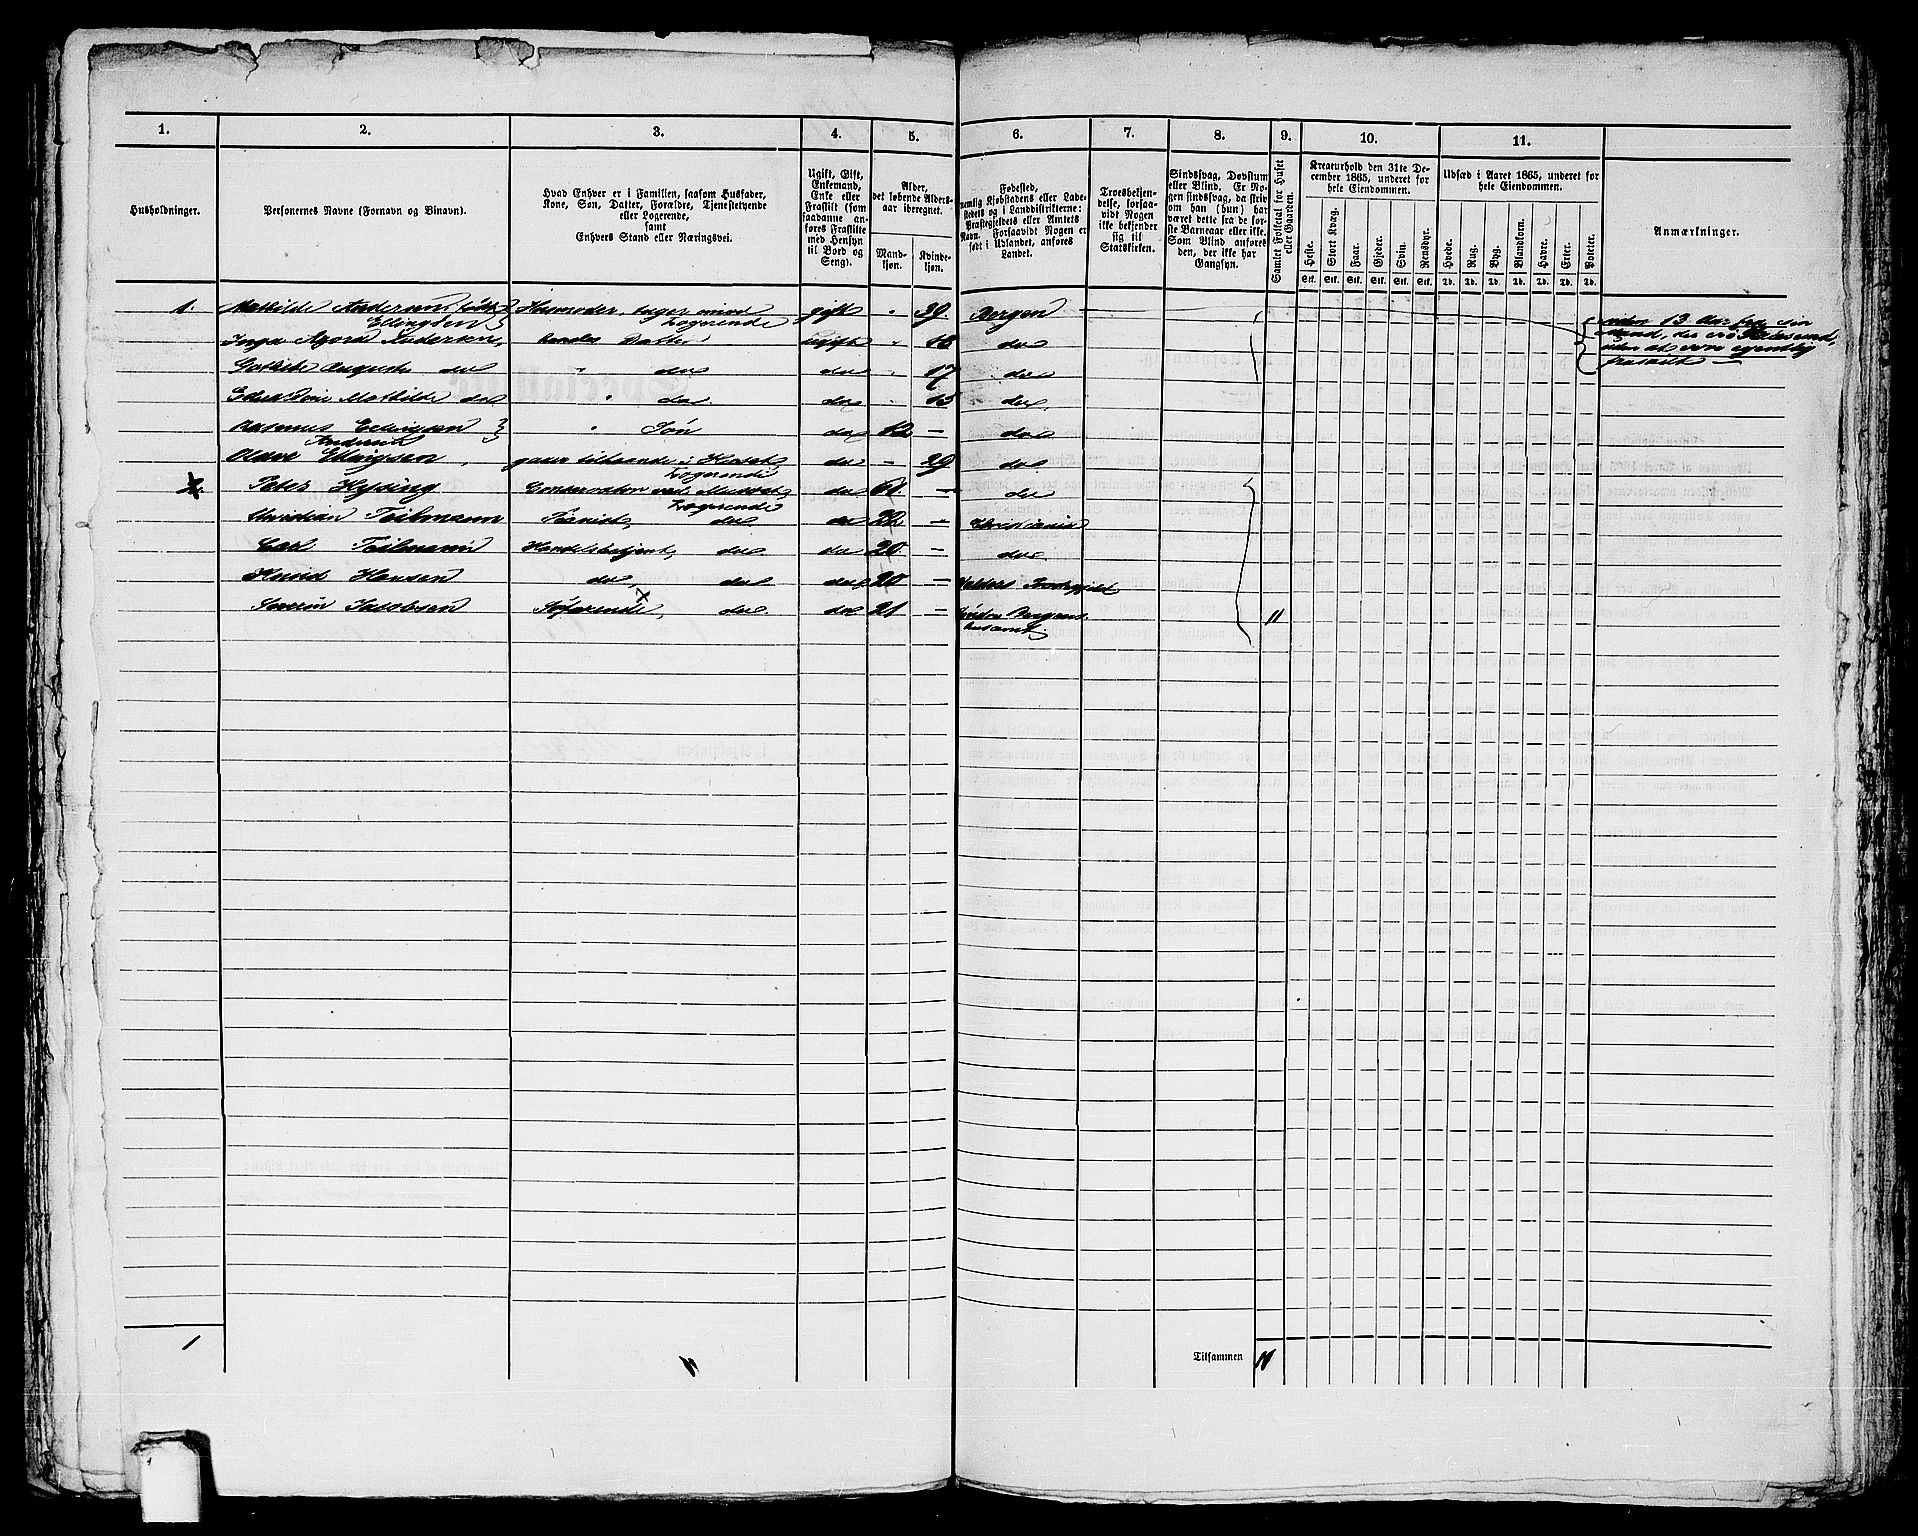 1. 2. 3. 4. 5. 6. 7. 8. 9. 10. 11.
Husholdninger.
Personernes Navne (Fornavn og Binavn).
Hvad Enhver er i Familien, saasom Husfader,
Kone, Søn, Datter, Forældre, Tjenestetyende
eller Logerende,
samt
Enhvers Stand eller Næringsvei.
Ugift, Gift,
Enkemand,
Enke eller
Fraskilt (som
saadanne an-
føres Fraskilte
med Hensyn
til Bord og
Seng).
Alder,
det løbende Alders-
aar iberegnet.
Mand-
kjøn.
Kvinde-
kjøn.
Fødested,
nemlig Kjøbstadens eller Lade-
stedets og i Landdistrikterne:
Præstegjeldets eller Amtets
Navn. Forsaavidt Nogen er
født i Udlandet, anføres
Landet.
Troesbekjen-
delse, forsaa-
vidt Nogen
ikke bekjender
sig til
Statskirken.
Sindssvag, Døvstum
eller Blind. Er No-
gen sindssvag, da skriv
om han (hun) har
været dette fra de før-
ste Barneaar eller ikke.
Som Blind anføres
den, der ikke har
Gangsyn.
Samlet Folketal for Huset
eller Gaarden.
Kreaturhold den 31te De-
cember 1865, underet for
hele Eiendommen.
Heste. Stort Kvæg. Faar. Gjeder. Svin. Rensdyr.
Stk. Stk. Stk. Stk. Stk. Stk.
Udsæd i Aaret 1865, underet for
hele Eiendommen.
Hvede. Rug. Byg. Blandkorn. Havre. Erter. Poteter.
Td. Td. Td. Td. Td. Td. Td.
Anmærkninger.
1. Mathilde Andersen født Husmoder, tager imod gift " 39 Bergen
Ellingsen Logerende
Inga Andersen hendes Datter ugift " 18 do
Auguste do " do do " 17 do
Mathilde do " do do " 15 do
Rasmus Ellingsen " Søn do 12 – do
Andersen
Ellingsen gaaer tilhaande i Huset, do – 29 do
Logerende
Peter Conservator ved Museet, do 61 – do
Logerende
Christian Teilmann do do 22 – Christiania
Carl Teilmann Handelsbetjent, do do 20 – do
Knud Hansen do do do 20 –
Severin Jacobsen Søfarende, do do 21 – Søndre Bergens- 11
husamt.
siden 13 Aar fra sin
Mand, der er i
uden at være egentlig
fraskilt
1
11
Tilsammen 11